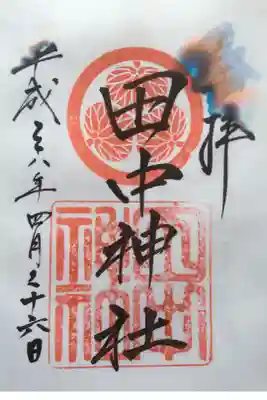 拝
田中神社
平成二八年四月二十六日
田中神社